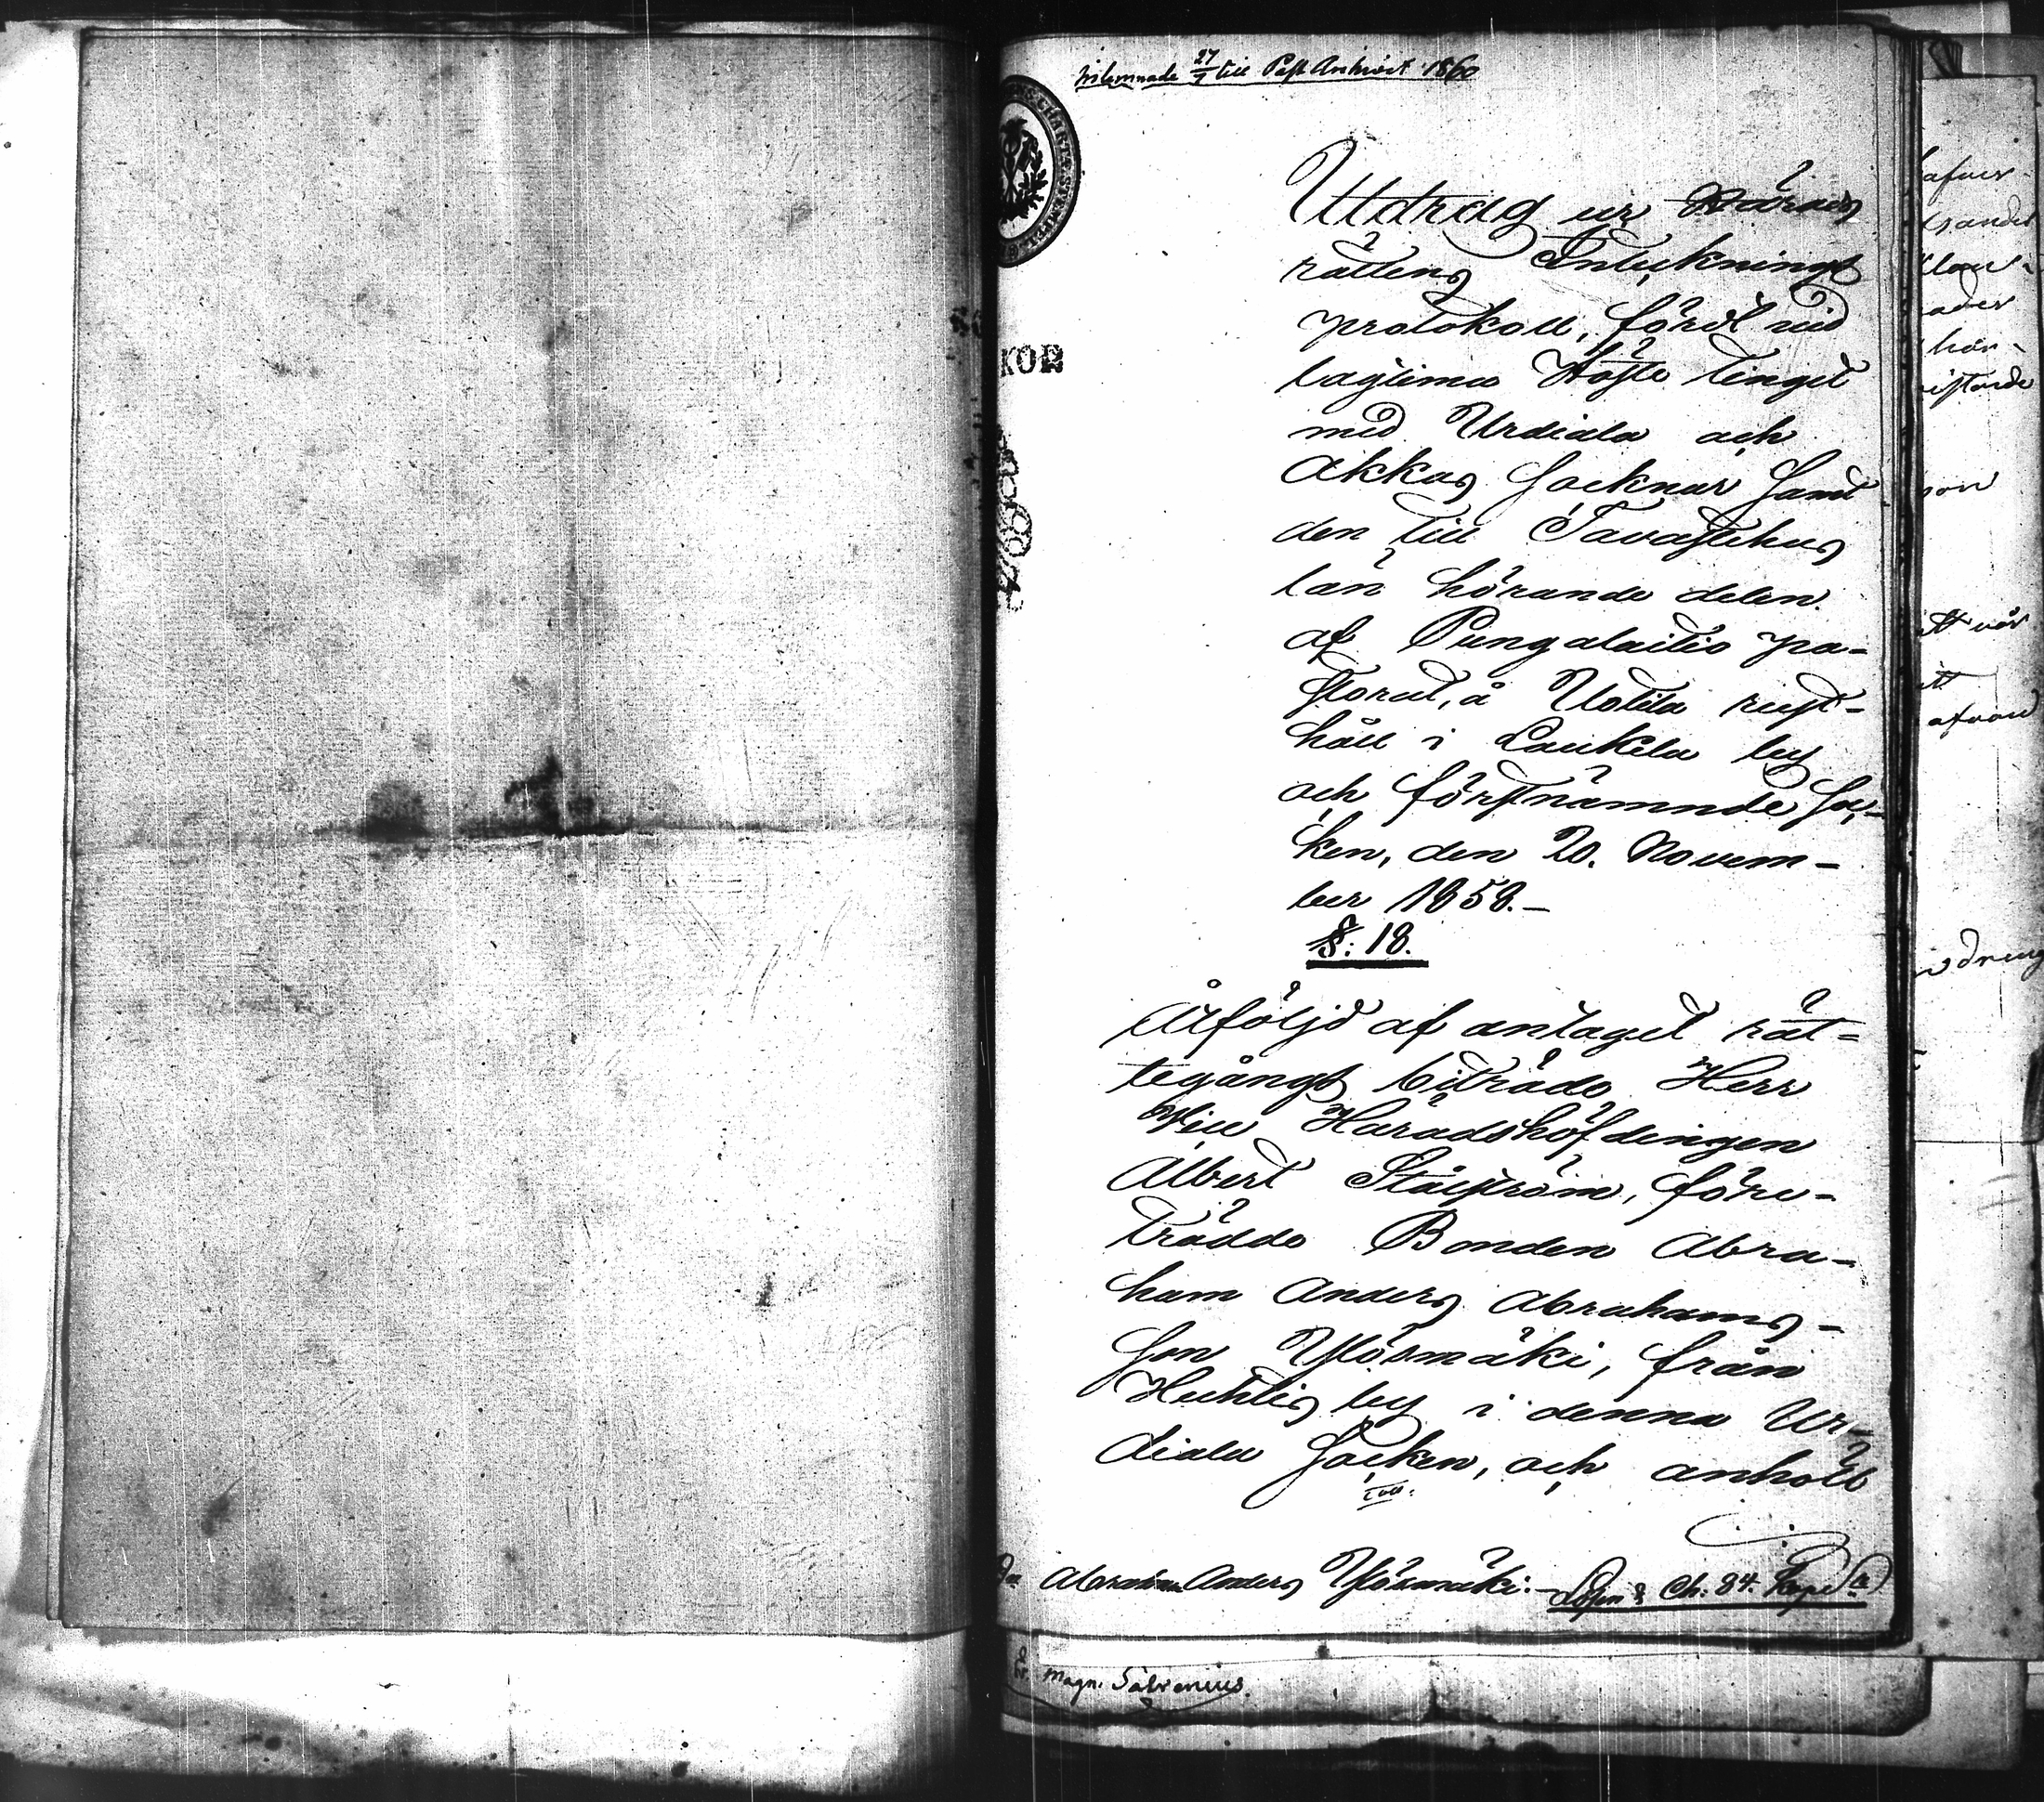 inlemnade 27/7 till Past Archivet 1860
CHARTÆ STEMPEL
KOP
Utdrag ur Härads
rättens Inteckningst
protokoll, fördt vid
lagtima Höste tinget
med Urdiala och
Akkas Socknar samt
den till Tavastehus
län hörande delen
af Pungalaitio pa-
storat, å Uotila rust-
håll i Laukela by
och förstnämnde So-
ken, den 20. Novem-
ber 1858.-
§: 18.
Åtföljd af antaget rät-
tegångs biträde Herr
Vice Häradshöfdingen
Albert Stålström, före-
trädde Bonden Abra-
ham Anders Abrahams-
son Yllösmäki, från
Huhtis by i denna Ur-
diala Socken, och anhöll
Abraham Anders Yllösmäki.- Lösen & Ch: 84. Kop.
Magn. Salvenius.
afver-
sandes
klav-
ades
hör-
istande
son
att vår
itt
afvan
dreng